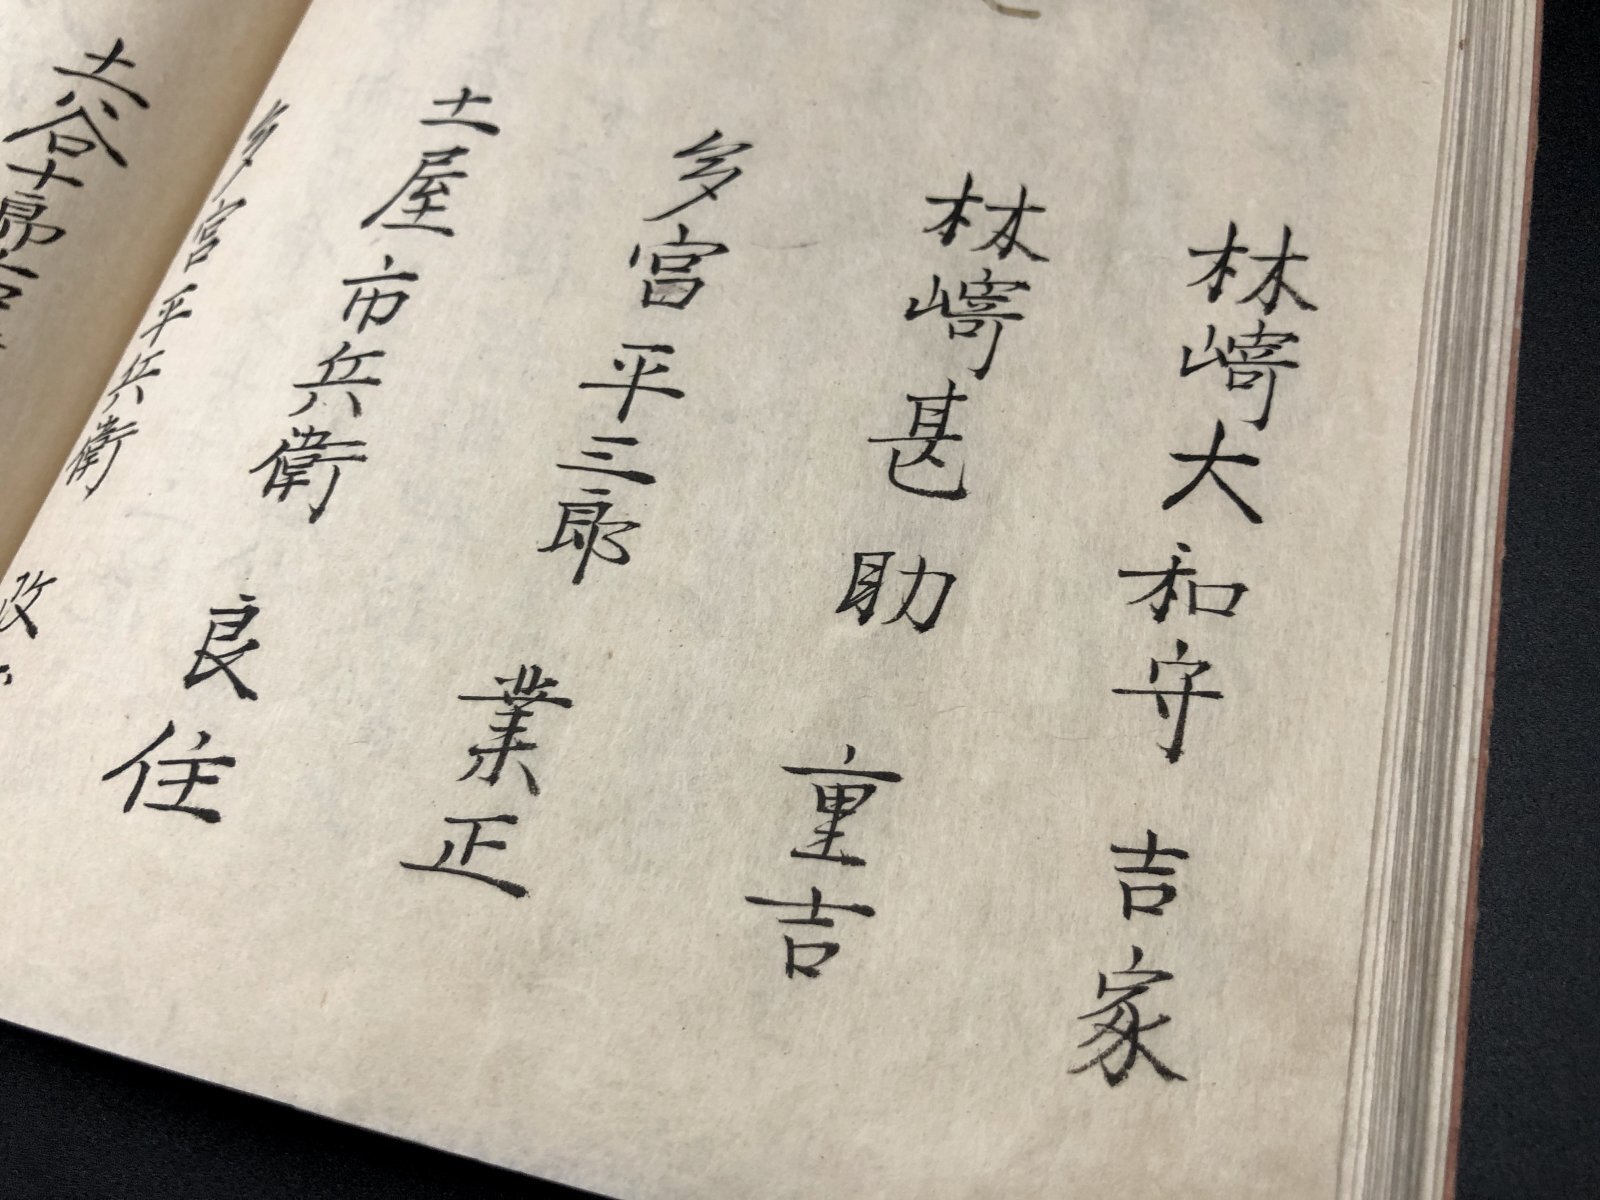 林﨑大和守 吉家
林﨑甚助 重吉
多宮平三郎 業正
土屋市兵衛 良住
多宮平兵衛 改